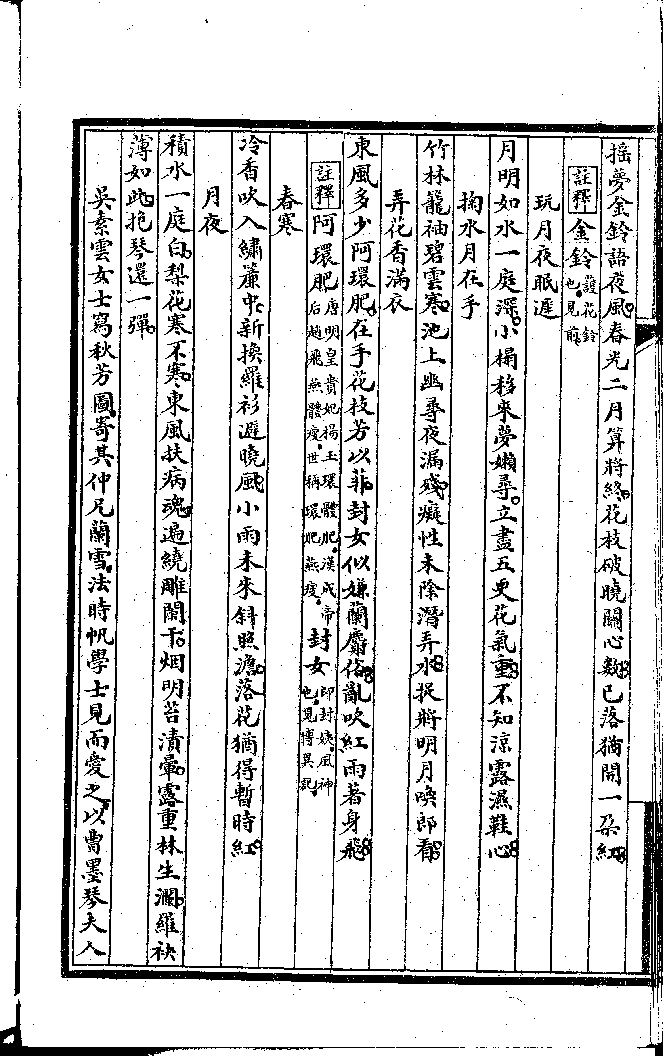 搖夢金鈴語夜風春光二月算將終花枝破曉關心數已落猶開一朶紅
註釋 金鈴 護花鈴也見前
玩月夜眠遲
月明如水一庭深小榻移來夢嬾尋立盡五更花氣重不知涼露濕鞋心
掬水月在手
竹林籠袖碧雲寒池上幽尋夜漏殘癡性未除潛弄水捉將明月喚郎看
弄花香滿衣
東風多少阿環肥在手花枝芳以菲封女似嫌蘭麝俗亂吹紅雨著身飛
註釋 阿環肥 唐明皇貴妃楊玉環體肥漢成帝后趙飛燕體瘦世稱環肥燕瘦 封女 即封姨風神也見博異記
春寒
冷香吹入繡簾中新換羅衫避曉風小雨未來斜照澹落花猶得暫時紅
月夜
積水一庭白梨花寒不寒東風扶病魂遍繞雕闌干烟明苔漬暈露重林生瀾羅袂
薄如此抱琴還一彈
吳素雲女士寫秋芳圖寄其仲兄蘭雪法時帆學士見而愛之以曹墨琴夫人